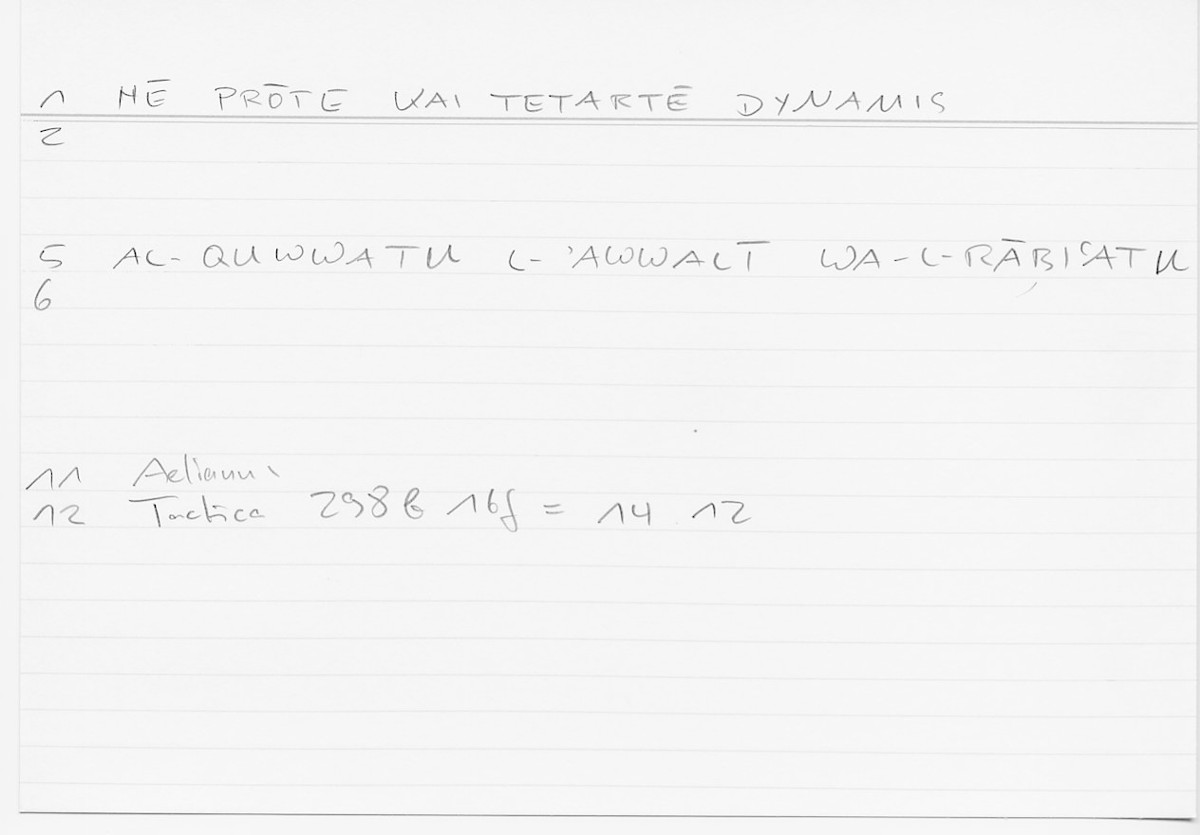 1 HĒ PRŌTE KAI TETARTĒ DYNAMIS
2
5 AL-QUWWATU L-ʾAWWALĪ WA-L-RĀBIʿATU
6
11 Aelianus
12 Tactica 298 b 16f = 14 12